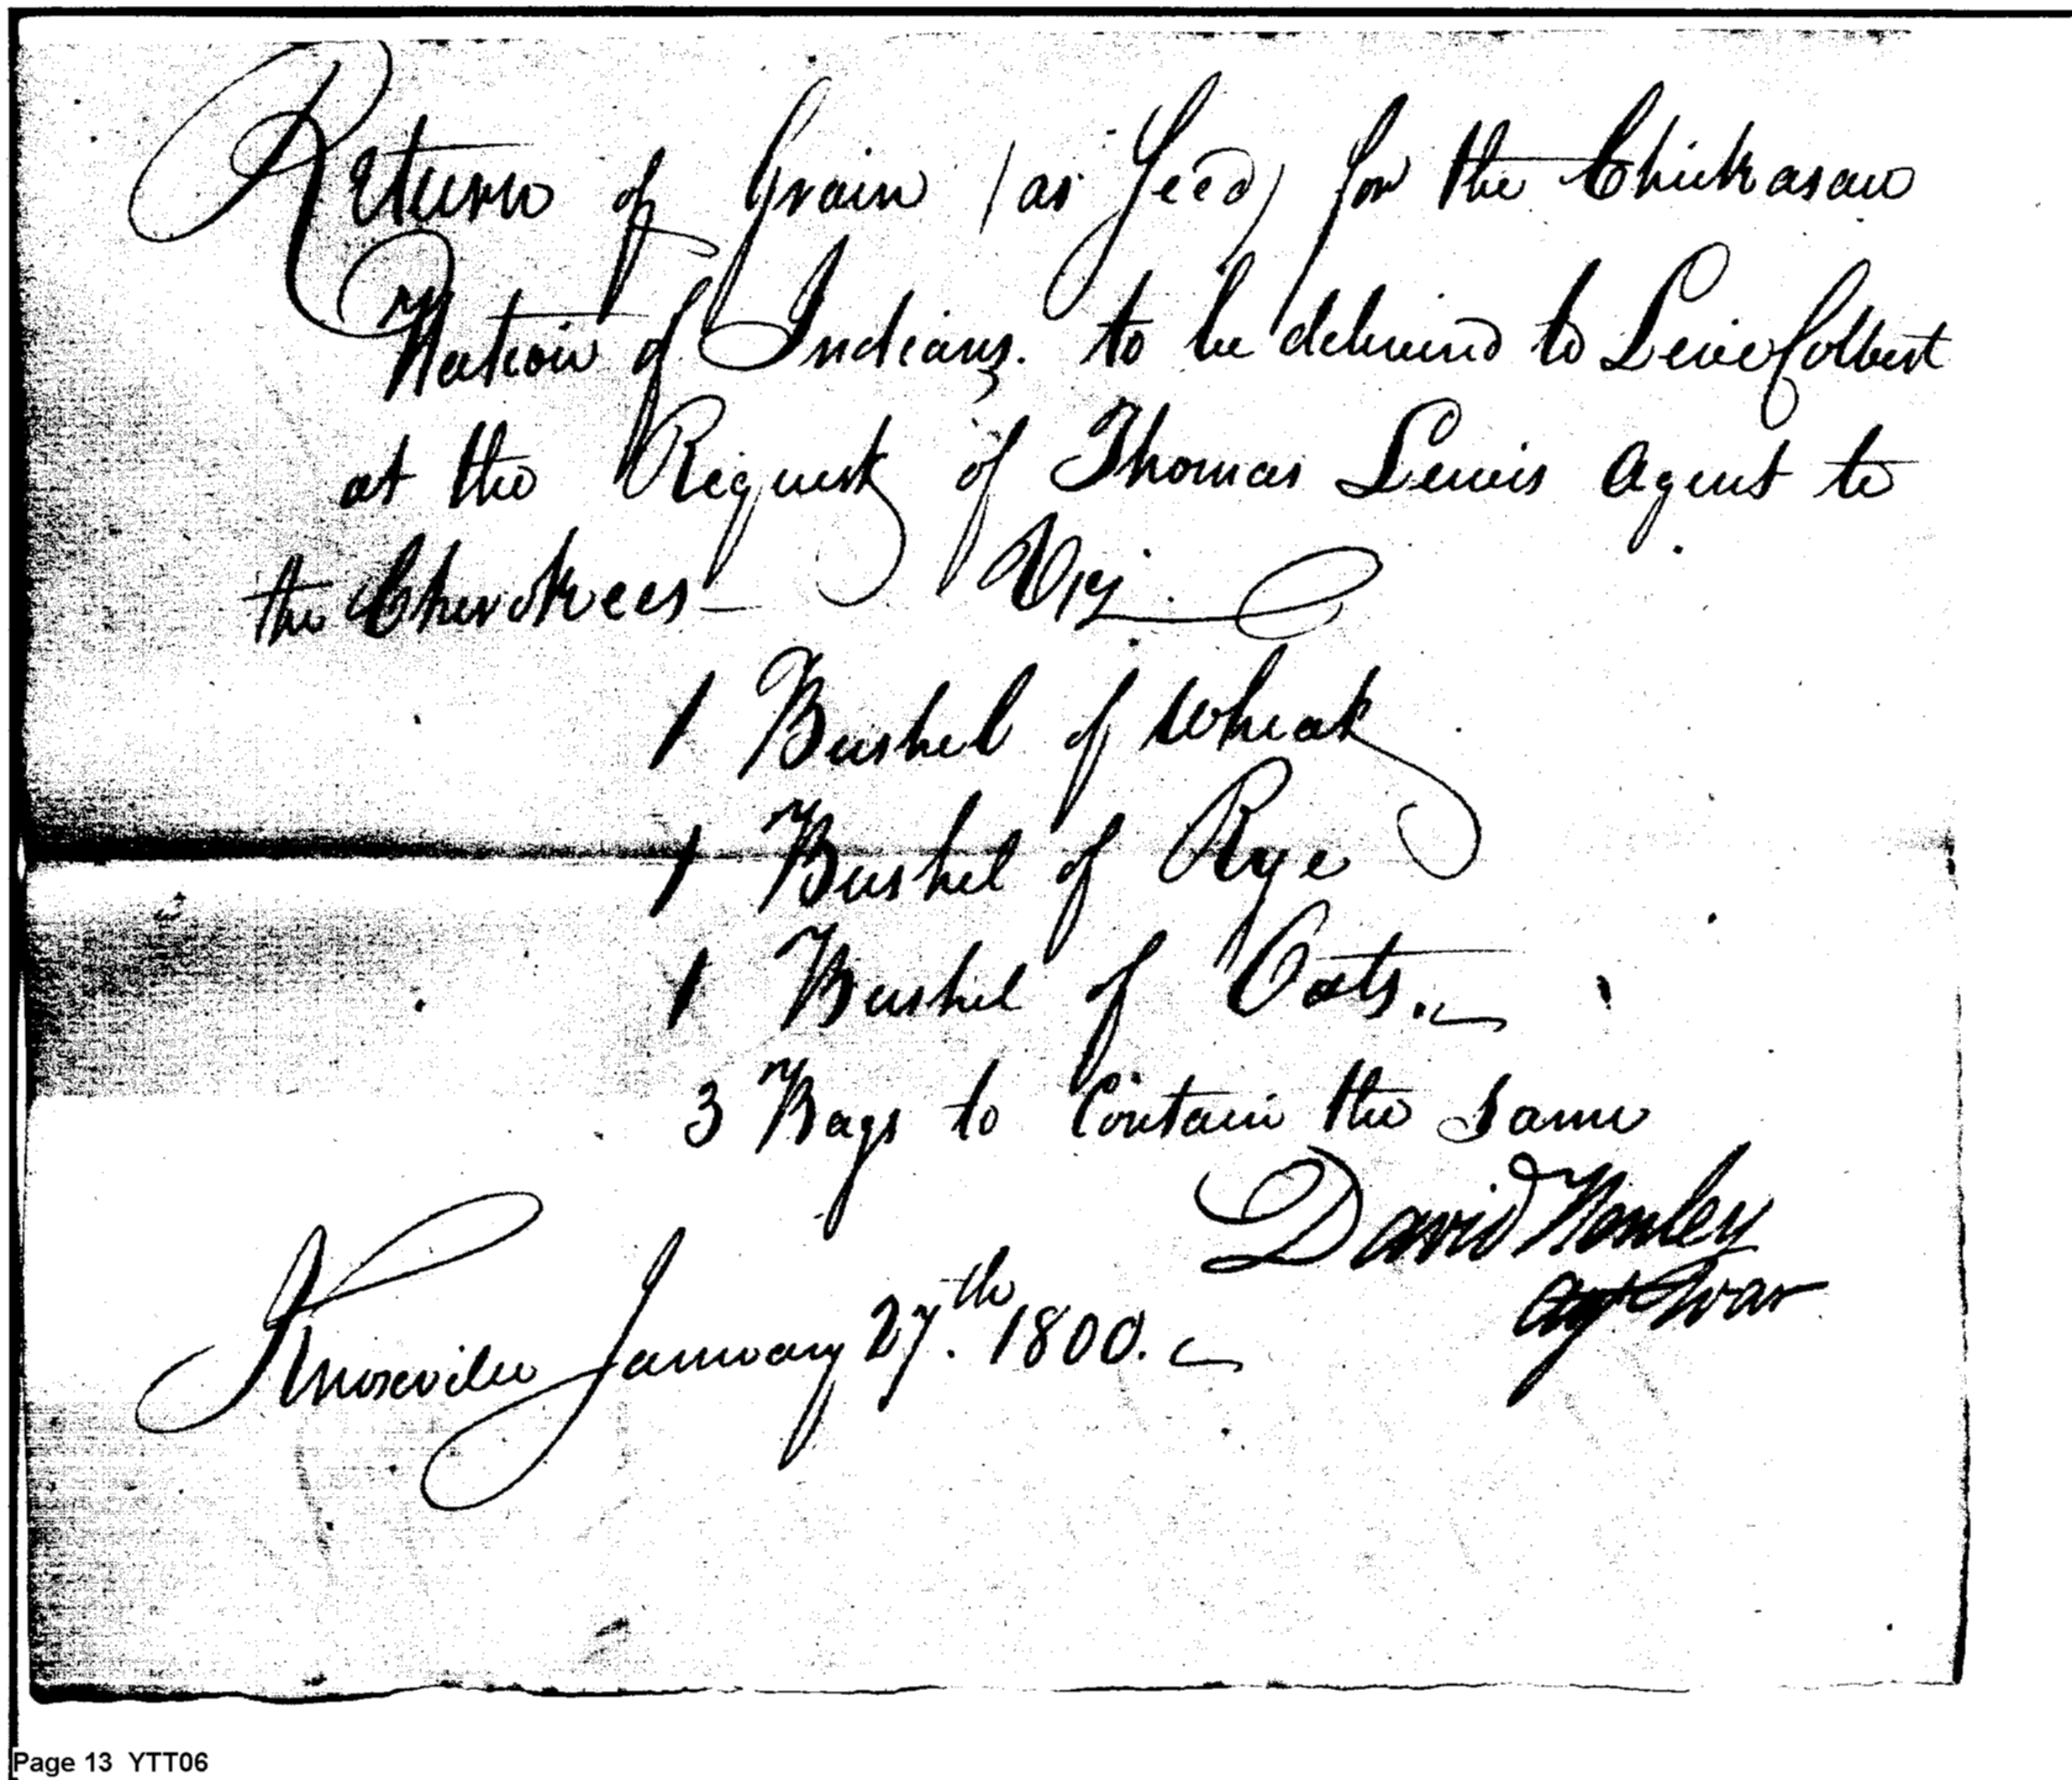 Return of Grain (as Seed) for the Chickasaw
Nation of Indians. to be delivered to Levie Colbert
at the Request of Thomas Lewis Agent to
the Cherokees — Viz.
1 Bushel of Wheat
1 Bushel of Rye
1 Bushel of Oats.
3 Bags to Contain the Same
David Henley
Agt War
Knoxville January 27th. 1800.
Page 13 YTT06